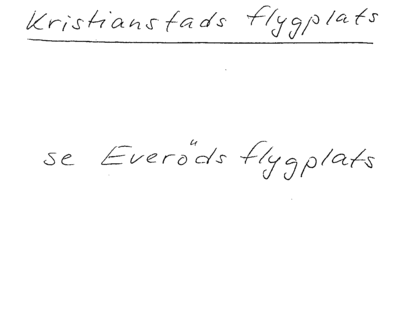 Kristianstads flygplats
se Everöds flygplats